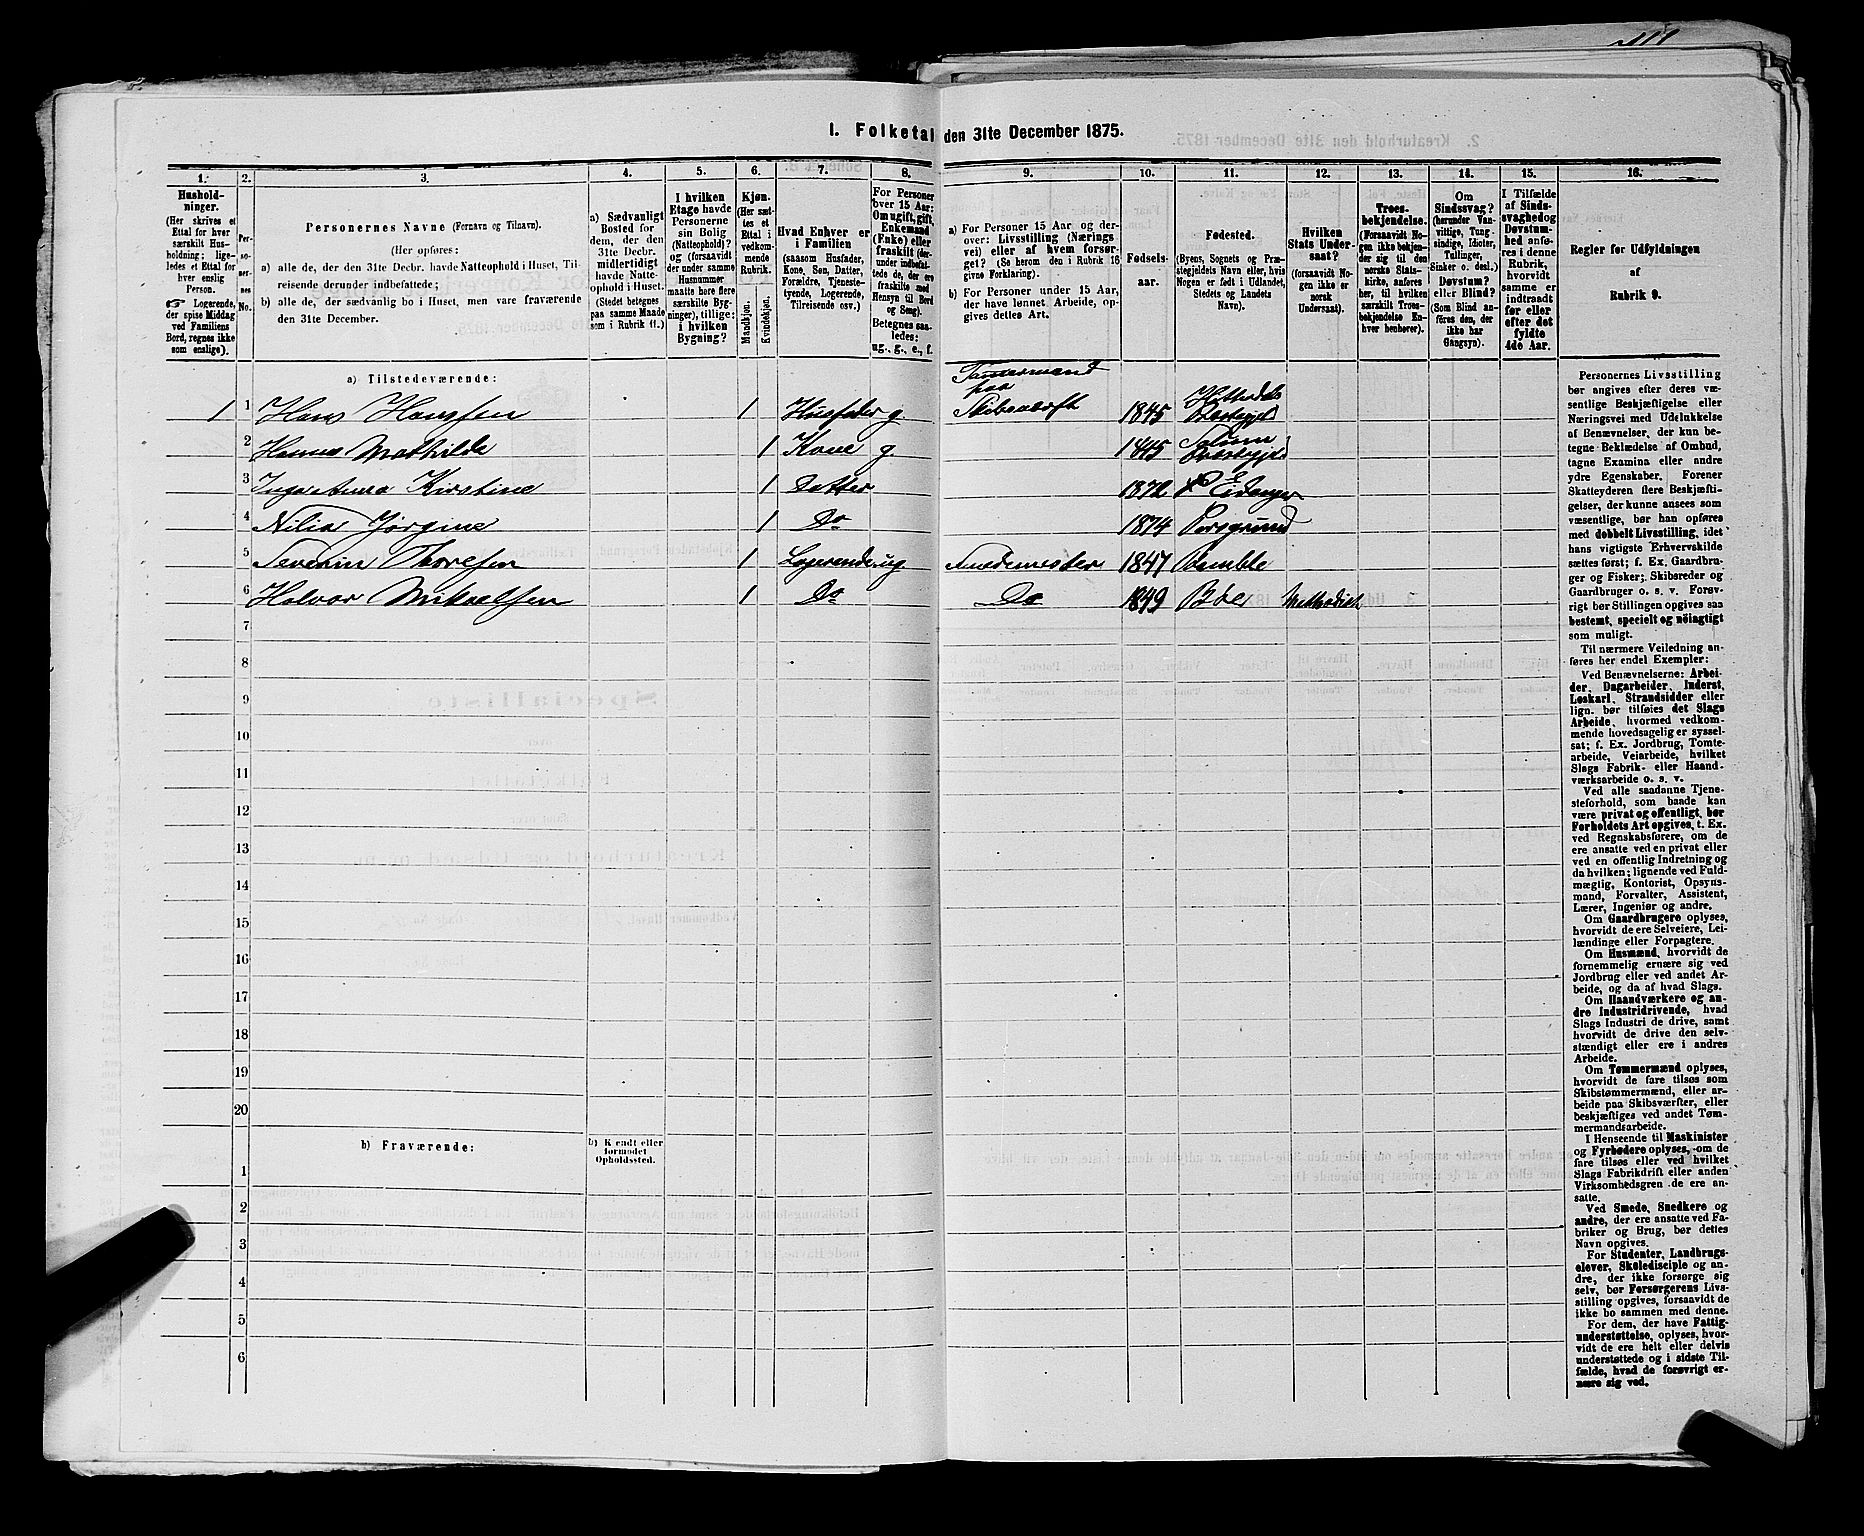 I. Folketal den 31te December 1875.
1.
2.
3.
4.
5.
6.
7.
8.
9.
10.
11.
12.
13.
14.
15.
16.
Hushold-
ninger.
(Her skrives et
Ettal for hver
særskilt Hus-
holdning; lige-
ledes et Ettal for
hver enslig
Person.
☞ Logerende,
der spise Middag
ved Familiens
Bord, regnes ikke
som enslige).
Per-
so-
ner-
nes
No.
Personernes Navne (Fornavn og Tilnavn).
(Her opføres:
a) alle de, der den 31te Decbr. havde Natteophold i Huset, Til-
reisende derunder indbefattede;
b) alle de, der sædvanlig bo i Huset, men vare fraværende
den 31te December.
a) Sædvanligt
Bosted for
dem, der den
31te Decbr.
midlertidigt
havde Natte-
ophold i Huset.
(Stedet betegnes
paa samme Maade
som i Rubrik 11.)
I hvilken
Etage havde
Personerne
sin Bolig
(Natteophold)?
og (forsaavidt
der under samme
Husnummer
maatte høre flere
særskilte Byg-
ninger), tillige:
i hvilken
Bygning?
Kjøn.
(Her sæt-
tes et
Ettal i
vedkom-
mende
Rubrik.)
Mandkjøn.
Kvindekjøn.
Hvad Enhver er
i Familien
(saasom Husfader,
Kone, Søn, Datter,
Forældre, Tjeneste-
tyende, Logerende,
Tilreisende osv.)
For Personer
over 15 Aar:
Om ugift, gift,
Enkemand
(Enke) eller
fraskilt (der-
under indbefat-
tede de, der ere
fraskilte med
Hensyn til Bord
og Seng).
Betegnes saa-
ledes:
ug., g., e., f.
a) For Personer 15 Aar og der-
over: Livsstilling (Nærings-
vei) eller af hvem forsør-
get? (Se herom den i Rubrik 16
givne Forklaring).
b) For Personer under 15 Aar,
der have lønnet Arbeide, op-
gives dettes Art.
Fødsels-
aar.
Fødested.
(Byens, Sognets og Præ-
stegjeldets Navn eller, hvis
Nogen er født i Udlandet,
Stedets og Landets
Navn).
Hvilken
Stats Under-
saat?
(forsaavidt No-
gen ikke er
norsk
Undersaat).
Troes-
bekjendelse.
(Forsaavidt No-
gen ikke bekjen-
der sig til den
norske Stats-
kirke, anføres
her, til hvilken
særskilt Troes-
bekjendelse En-
hver henhører).
Om
Sindssvag?
(herunder Van-
vittige, Tung-
sindige, Idioter,
Tullinger,
Sinker o. desl.)
Døvstum?
eller Blind?
(Som Blind an-
føres den, der
ikke har
Gangsyn).
I Tilfælde
af Sinds-
svaghed og
Døvstum-
hed anfø-
res i denne
Rubrik,
hvorvidt
samme er
indtraadt
før eller
efter det
fyldte
4de Aar.
Regler for Udfyldningen
af
Rubrik 9.
a) Tilstedeværende:
1 1 Hans Hansen 1 Husfader g Tømmermand paa Skibsværft 1845 Hitterdals Præstegjeld
2 Hanna Mathilde 1 Kone g 1845 Solum Præstegjeld
3 Inga Anna Kirstine 1 Datter 1872 Eidanger
4 Nilia Jørgine 1 Do 1874 Porsgrund
5 Severin Thoresen 1 Logerende ug Smedemester 1847 Bamble
6 Halvor Mikaelsen 1 Do Do 1849 Methodist
7
8
9
10
11
12
13
14
15
16
17
18
19
20
b) Fraværende:
b) Kjendt eller
formodet
Opholdssted.
1
2
3
4
5
6
Personernes Livsstilling
bør angives efter deres væ-
sentlige Beskjæftigelse eller
Næringsvei med Udelukkelse
af Benævnelser, der kun be-
tegne Beklædelse af Ombud,
tagne Examina eller andre
ydre Egenskaber. Forener
Skatteyderen flere Beskjæfti-
gelser, der kunne ansees som
væsentlige, bør han opføres
med dobbelt Livsstilling, idet
hans vigtigste Erhvervskilde
sættes først; f. Ex. Gaardbru-
ger og Fisker; Skibsreder og
Gaardbruger o. s. v. Forøv-
rigt bør Stillingen opgives saa
bestemt, specielt og nøiagtigt
som muligt.
Til nærmere Veiledning an-
føres her endel Exempler:
Ved Benævnelserne: Arbei-
der, Dagarbeider, Inderst,
Løskarl, Strandsidder eller
lign. bør tilføies det Slags
Arbeide, hvormed vedkom-
mende hovedsagelig er syssel-
sat; f. Ex. Jordbrug, Tomte-
arbeide, Veiarbeide, hvilket
Slags Fabrik- eller Haand-
værksarbeide o. s. v.
Ved alle saadanne Tjene-
steforhold, som baade kan
være privat og offentligt, bør
Forholdets Art opgives, t. Ex.
ved Regnskabsførere, om de
ere ansatte ved en privat eller
ved en offentlig Indretning og
da hvilken; lignende ved Fuld-
mægtig, Kontorist, Opsyns-
mand, Forvalter, Assistent,
Lærer, Ingeniør og andre.
Om Gaardbrugere oplyses,
hvorvidt de ere Selveiere, Lei-
lændinge eller Forpagtere.
Om Husmænd, hvorvidt de
fornemmelig ernære sig ved
Jordbrug eller ved andet Ar-
beide, og da af hvad Slags.
Om Haandværkere og an-
dre Industridrivende, hvad
Slags Industri de drive, samt
hvorvidt de drive den selv-
stændigt eller ere i andres
Arbeide.
Om Tømmermænd oplyses,
hvorvidt de fare tilsøs som
Skibstømmermænd, eller ar-
beide paa Skibsværfter, eller
beskjæftiges ved andet Tøm-
mermandsarbeide.
I Henseende til Maskinister
og Fyrbødere oplyses, om de
fare tilsøs eller ved hvilket
Slags Fabrikdrift eller anden
Virksomhedsgren de ere an-
satte.
Ved Smede, Snedkere og
andre, der ere ansatte ved Fa-
briker og Brug, bør dettes
Navn opgives.
For Studenter, Landbrugs-
elever, Skoledisciple og an-
dre, der ikke forsørge sig
selv, bør Forsørgerens Livs-
stilling opgives, forsaavidt de
ikke bo sammen med denne.
For dem, der have Fattig-
understøttelse, oplyses, hvor-
vidt de ere helt eller delvis
understøttede og i sidste Til-
fælde, hvad de forøvrigt er-
nære sig ved.